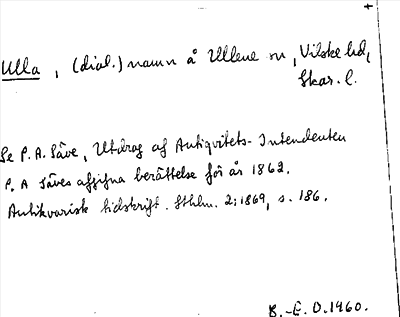 +
Ulla, (dial.) namn å Ullene sn, Vilske hd,
Skar. l.
Se P. A. Säve, Utdrag af Antiqvitets-Intendenten
P. A Säves afgifna berättelse för år 1862.
Antikvarisk tidskrift. Sthlm. 2:1869, s. 186.
B.-E. O. 1960.